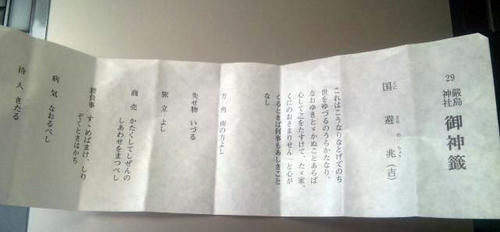 29 厳島神社 御神籤
国避兆(吉)
これはこうなりなとげてのち
世をゆづるのうらかたなり、
なおゆきとゞかぬことあらば
心して之をたすけて、たゞ家、
くにのおさまりせん一と心が
くるときは何事もあしきこと
なし
方角 南の方よし
失せ物 いづる
旅立 よし
商売 かたくしてしぜんの
しあわせをまつべし
すゝめばまけ、しり
ぞくときはかち
病気 なおるべし
待人 きたる